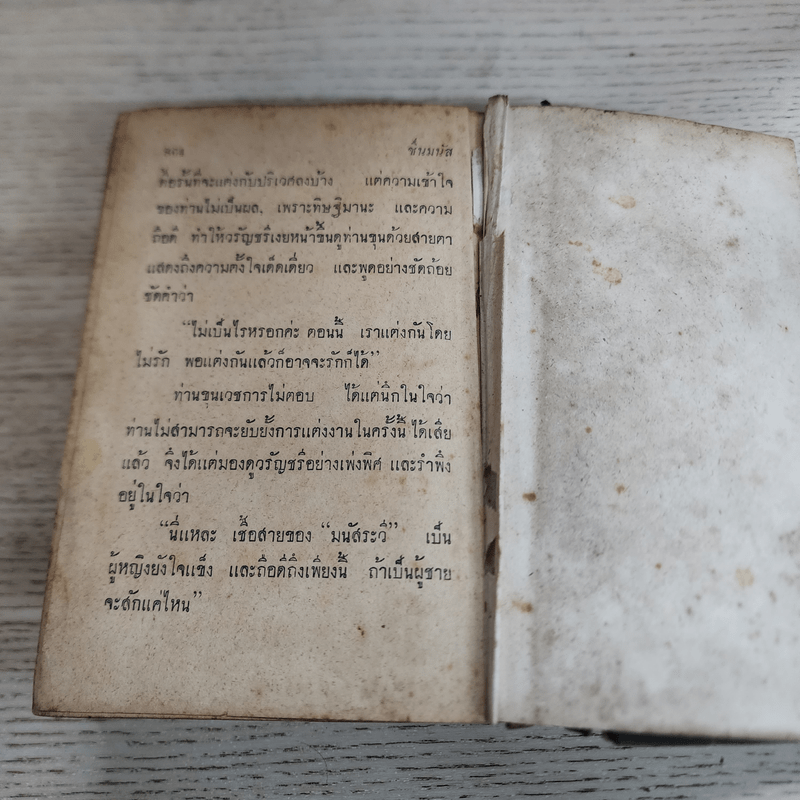 ชื่นมนัส
ที่จะแต่งกับปริเวศลงบ้าง แต่ความเข้าใจ
ของท่านไม่เป็นผล, เพราะทิษฐิมานะ และความ
ถือดี ทำให้วรัญชรีเงยหน้าขึ้นดูท่านขุนด้วยสายตา
แสดงถึงความตั้งใจเด็ดเดี่ยว และพูดอย่างชัดถ้อย
ชัดคำว่า
“ไม่เป็นไรหรอกค่ะ ตอนนี้ เราแต่งกันโดย
ไม่รัก พอแต่งกันแล้วก็อาจจะรักก็ได้”
ท่านขุนเวชการไม่ตอบ ได้แต่นึกในใจว่า
ท่านไม่สามารถจะยับยั้งการแต่งงานในครั้งนี้ได้เสีย
แล้ว จึงได้แต่มองดูวรัญชรีอย่างเพ่งพิศ และรำพึง
อยู่ในใจว่า
“นี่แหละ เชื้อสายของ “มนัสระวี” เป็น
ผู้หญิงยังใจแข็ง และถือดีถึงเพียงนี้ ถ้าเป็นผู้ชาย
จะสักแค่ไหน”